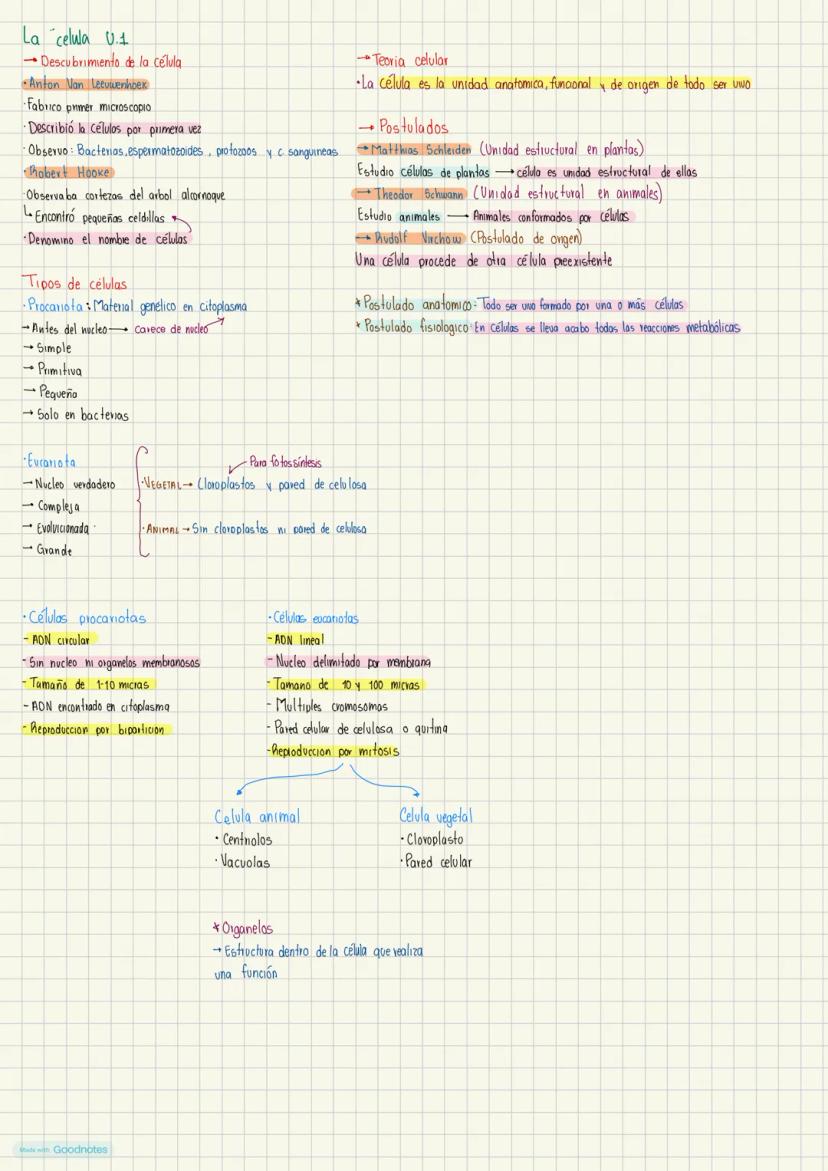 La celula U.1
→ Descubrimiento de la célula
· Anton Van Leeuwenhoek
· Fabrico primer microscopio
· Describió la células por primera vez
· Observo: Bacterias, espermatozoides, protozoos y c. sanguineas
· Robert Hooke
· Observaba cortezas del arbol alcornoque
↳ Encontró pequeñas celdillas
· Denomino el nombre de células
→ Teoria celular
· La célula es la unidad anatomica, funcional y de origen de todo ser vivo
→ Postulados
→ Matthias Schleiden (Unidad estructural en plantas)
Estudio células de plantas → célula es unidad estructural de ellas
→ Theodor Schwann (Unidad estructural en animales)
Estudio animales → Animales conformados por células
→ Rudolf Virchow (Postulado de origen)
Una célula procede de otra célula preexistente
* Postulado anatomico: Todo ser vivo formado por una o más células
* Postulado fisiologico: En células se lleva acabo todas las reacciones metabólicas
Tipos de células
· Procariota: Material genético en citoplasma
→ Antes del nucleo → carece de nucleo
→ Simple
→ Primitiva
→ Pequeña
→ Solo en bacterias
· Eucariota
→ Nucleo verdadero
→ Compleja
→ Evolucionada
→ Grande
Para fotossíntesis
· VEGETAL → Cloroplastos y pared de celulosa
· ANIMAL → Sin cloroplastos ni pared de celulosa
· Células procariotas
- ADN circular
- Sin nucleo ni organelos membranosos
- Tamaño de 1-10 micras
- ADN encontrado en citoplasma
- Reproduccion por biparticion
· Células eucariotas
- ADN lineal
- Nucleo delimitado por membrana
- Tamano de 10 y 100 micras
- Multiples cromosomas
- Pared celular de celulosa o quitina
- Reproduccion por mitosis
Celula animal
· Centriolos
· Vacuolas
Celula vegetal
· Cloroplasto
· Pared celular
* Organelos
→ Estructura dentro de la célula que realiza
una función
Made with Goodnotes